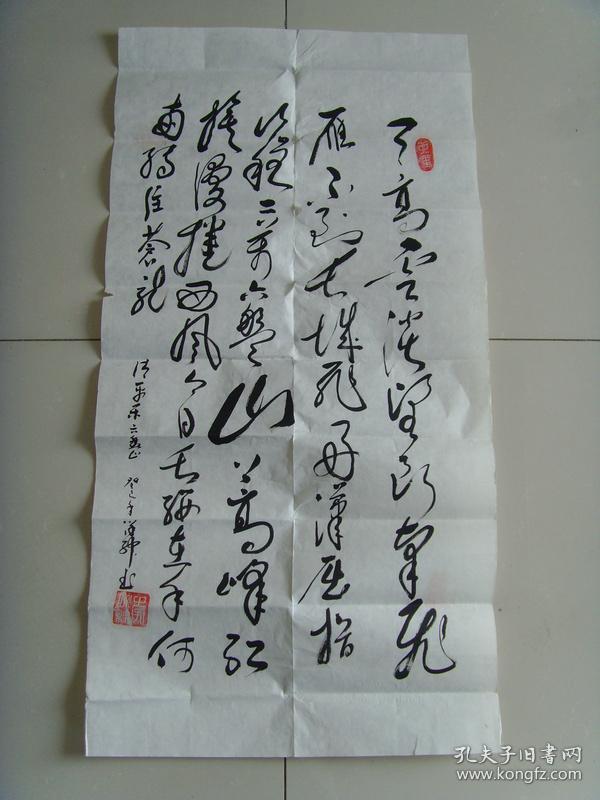 天高雲淡望断南飛
雁不到长城非好漢屈指
行程二万六盤山上高峰红
旗漫捲西风今日长缨在手何
时缚住蒼龙
清平乐六盘山 癸巳年 书
孔夫子旧書网
www.kongfz.com